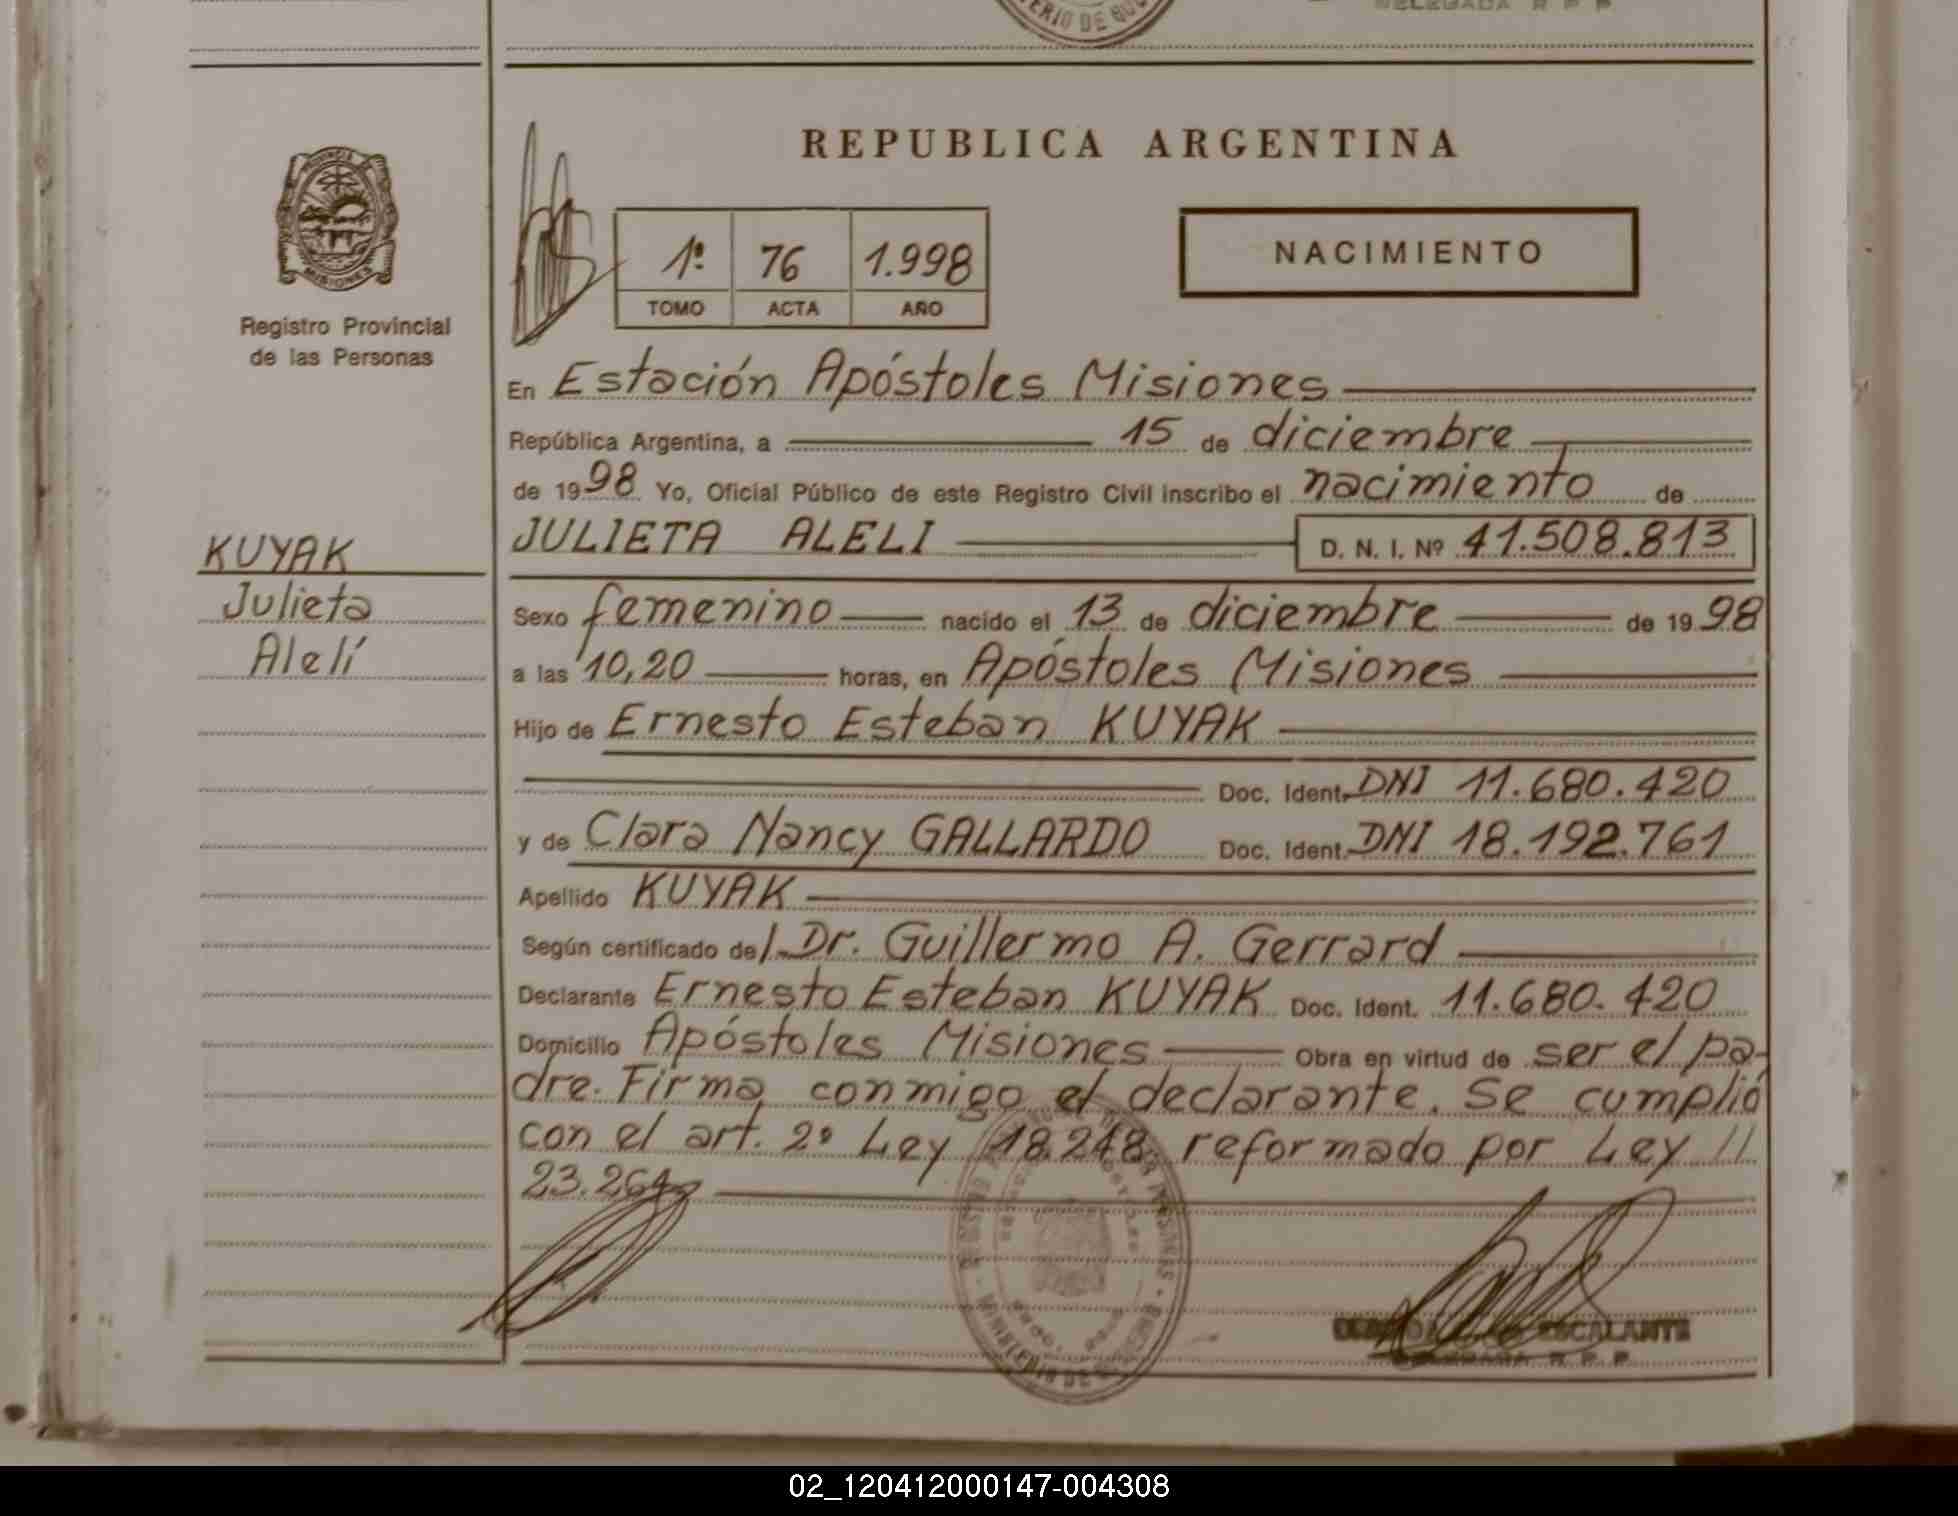 DELEGADA R P P
REPUBLICA ARGENTINA
PROVINCIA DE
MISIONES
Registro Provincial
de las Personas
1º 76 1.998
TOMO ACTA AÑO
NACIMIENTO
En Estación Apóstoles Misiones
República Argentina, a 15 de diciembre
de 1998 Yo, Oficial Público de este Registro Civil inscribo el nacimiento de
JULIETA ALELI D. N. I. Nº 41.508.813
KUYAK
Julieta
Alelí
Sexo femenino nacido el 13 de diciembre de 1998
a las 10,20 horas, en Apóstoles Misiones
Hijo de Ernesto Esteban KUYAK
Doc. Ident. DNI 11.680.420
y de Clara Nancy GALLARDO Doc. Ident. DNI 18.192.761
Apellido KUYAK
Según certificado del Dr. Guillermo A. Gerrard
Declarante Ernesto Esteban KUYAK Doc. Ident. 11.680.420
Domicilio Apóstoles Misiones Obra en virtud de ser el pa-
dre. Firma conmigo el declarante. Se cumplió
con el art. 2º Ley 18.248 reformado por Ley //
23.264
MINISTERIO DE GOBIERNO
ESCALANTE
DELEGADA R. P. P.
02_120412000147-004308